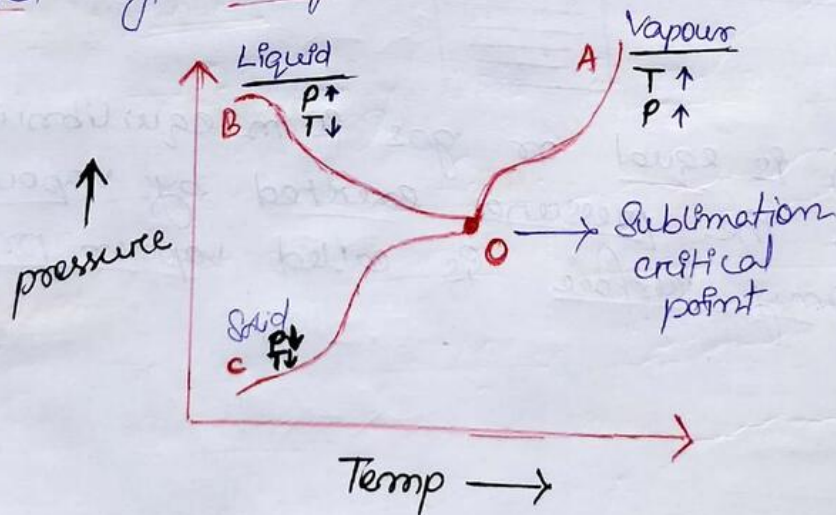 Liquid
P↑
T↓
B
A
Vapour
T ↑
P ↑
↑
pressure
O → Sublimation
critical
point
Solid
P↓
T↓
C
Temp →